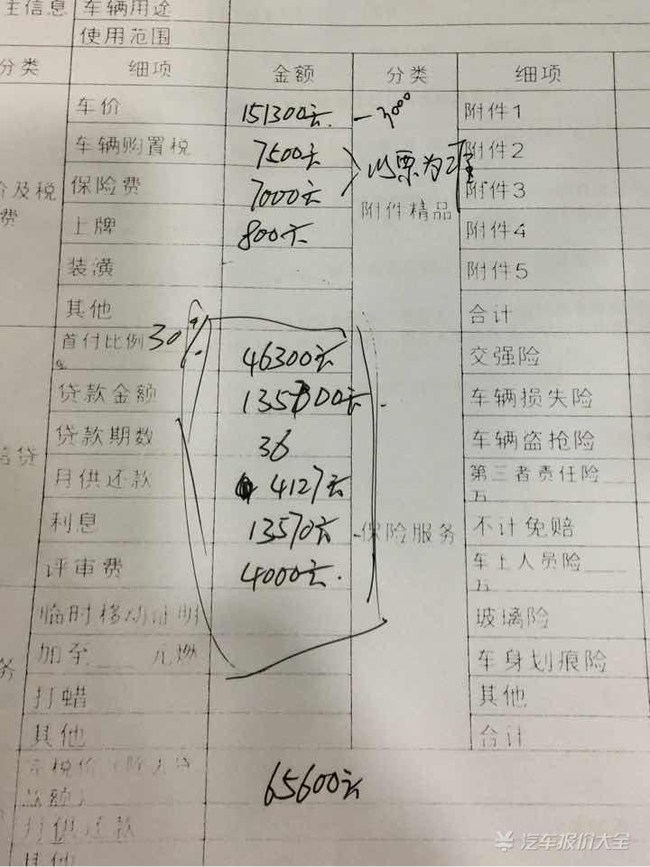 主信息 车辆用途
使用范围
分类 细项 金额 分类 细项
车价 151300元. -3000 附件1
车辆购置税 7500元 附件2
价及税 保险费 7000元 以票为准 附件3
费 上牌 800元 附件精品 附件4
装潢 附件5
其他 合计
首付比例 30% 46300元 交强险
贷款金额 元. 车辆损失险
贷款期数 36 车辆盗抢险
信贷 月供还款 4127元 第三者责任险
万
利息 13570元 保险服务 不计免赔
评审费 4000元. 车上人员险
万
临时移动证明 玻璃险
务 加至 元燃 车身划痕险
打蜡 其他
其他 合计
总额) 65600元
月供还款
其他
汽车报价大全